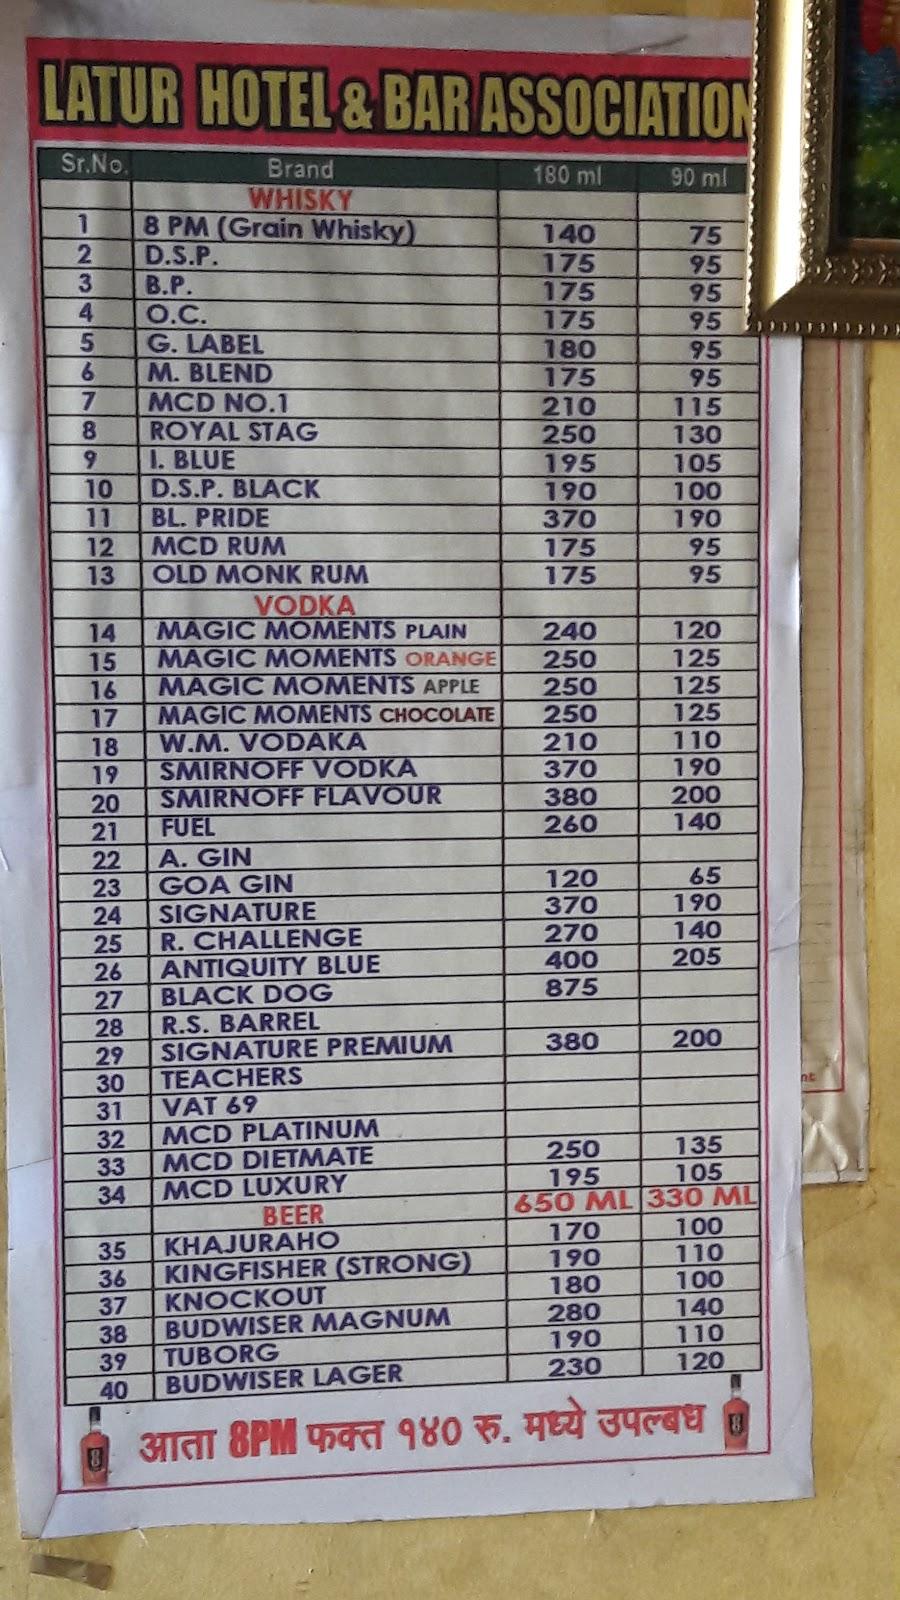 LATUR HOTEL & BAR ASSOCIATION
Sr.No. Brand 180 ml 90 ml
WHISKY
1 8 PM (Grain Whisky) 140 75
2 D.S.P. 175 95
3 B.P. 175 95
4 O.C. 175 95
5 G. LABEL 180 95
6 M. BLEND 175 95
7 MCD NO.1 210 115
8 ROYAL STAG 250 130
9 I. BLUE 195 105
10 D.S.P. BLACK 190 100
11 BL. PRIDE 370 190
12 MCD RUM 175 95
13 OLD MONK RUM 175 95
VODKA
14 MAGIC MOMENTS PLAIN 240 120
15 MAGIC MOMENTS ORANGE 250 125
16 MAGIC MOMENTS APPLE 250 125
17 MAGIC MOMENTS CHOCOLATE 250 125
18 W.M. VODAKA 210 110
19 SMIRNOFF VODKA 370 190
20 SMIRNOFF FLAVOUR 380 200
21 FUEL 260 140
22 A. GIN
23 GOA GIN 120 65
24 SIGNATURE 370 190
25 R. CHALLENGE 270 140
26 ANTIQUITY BLUE 400 205
27 BLACK DOG 875
28 R.S. BARREL
29 SIGNATURE PREMIUM 380 200
30 TEACHERS
31 VAT 69
32 MCD PLATINUM
33 MCD DIETMATE 250 135
34 MCD LUXURY 195 105
BEER 650 ML 330 ML
35 KHAJURAHO 170 100
36 KINGFISHER (STRONG) 190 110
37 KNOCKOUT 180 100
38 BUDWISER MAGNUM 280 140
39 TUBORG 190 110
40 BUDWISER LAGER 230 120
आता 8PM फक्त १४० रु. मध्ये उपल्बध